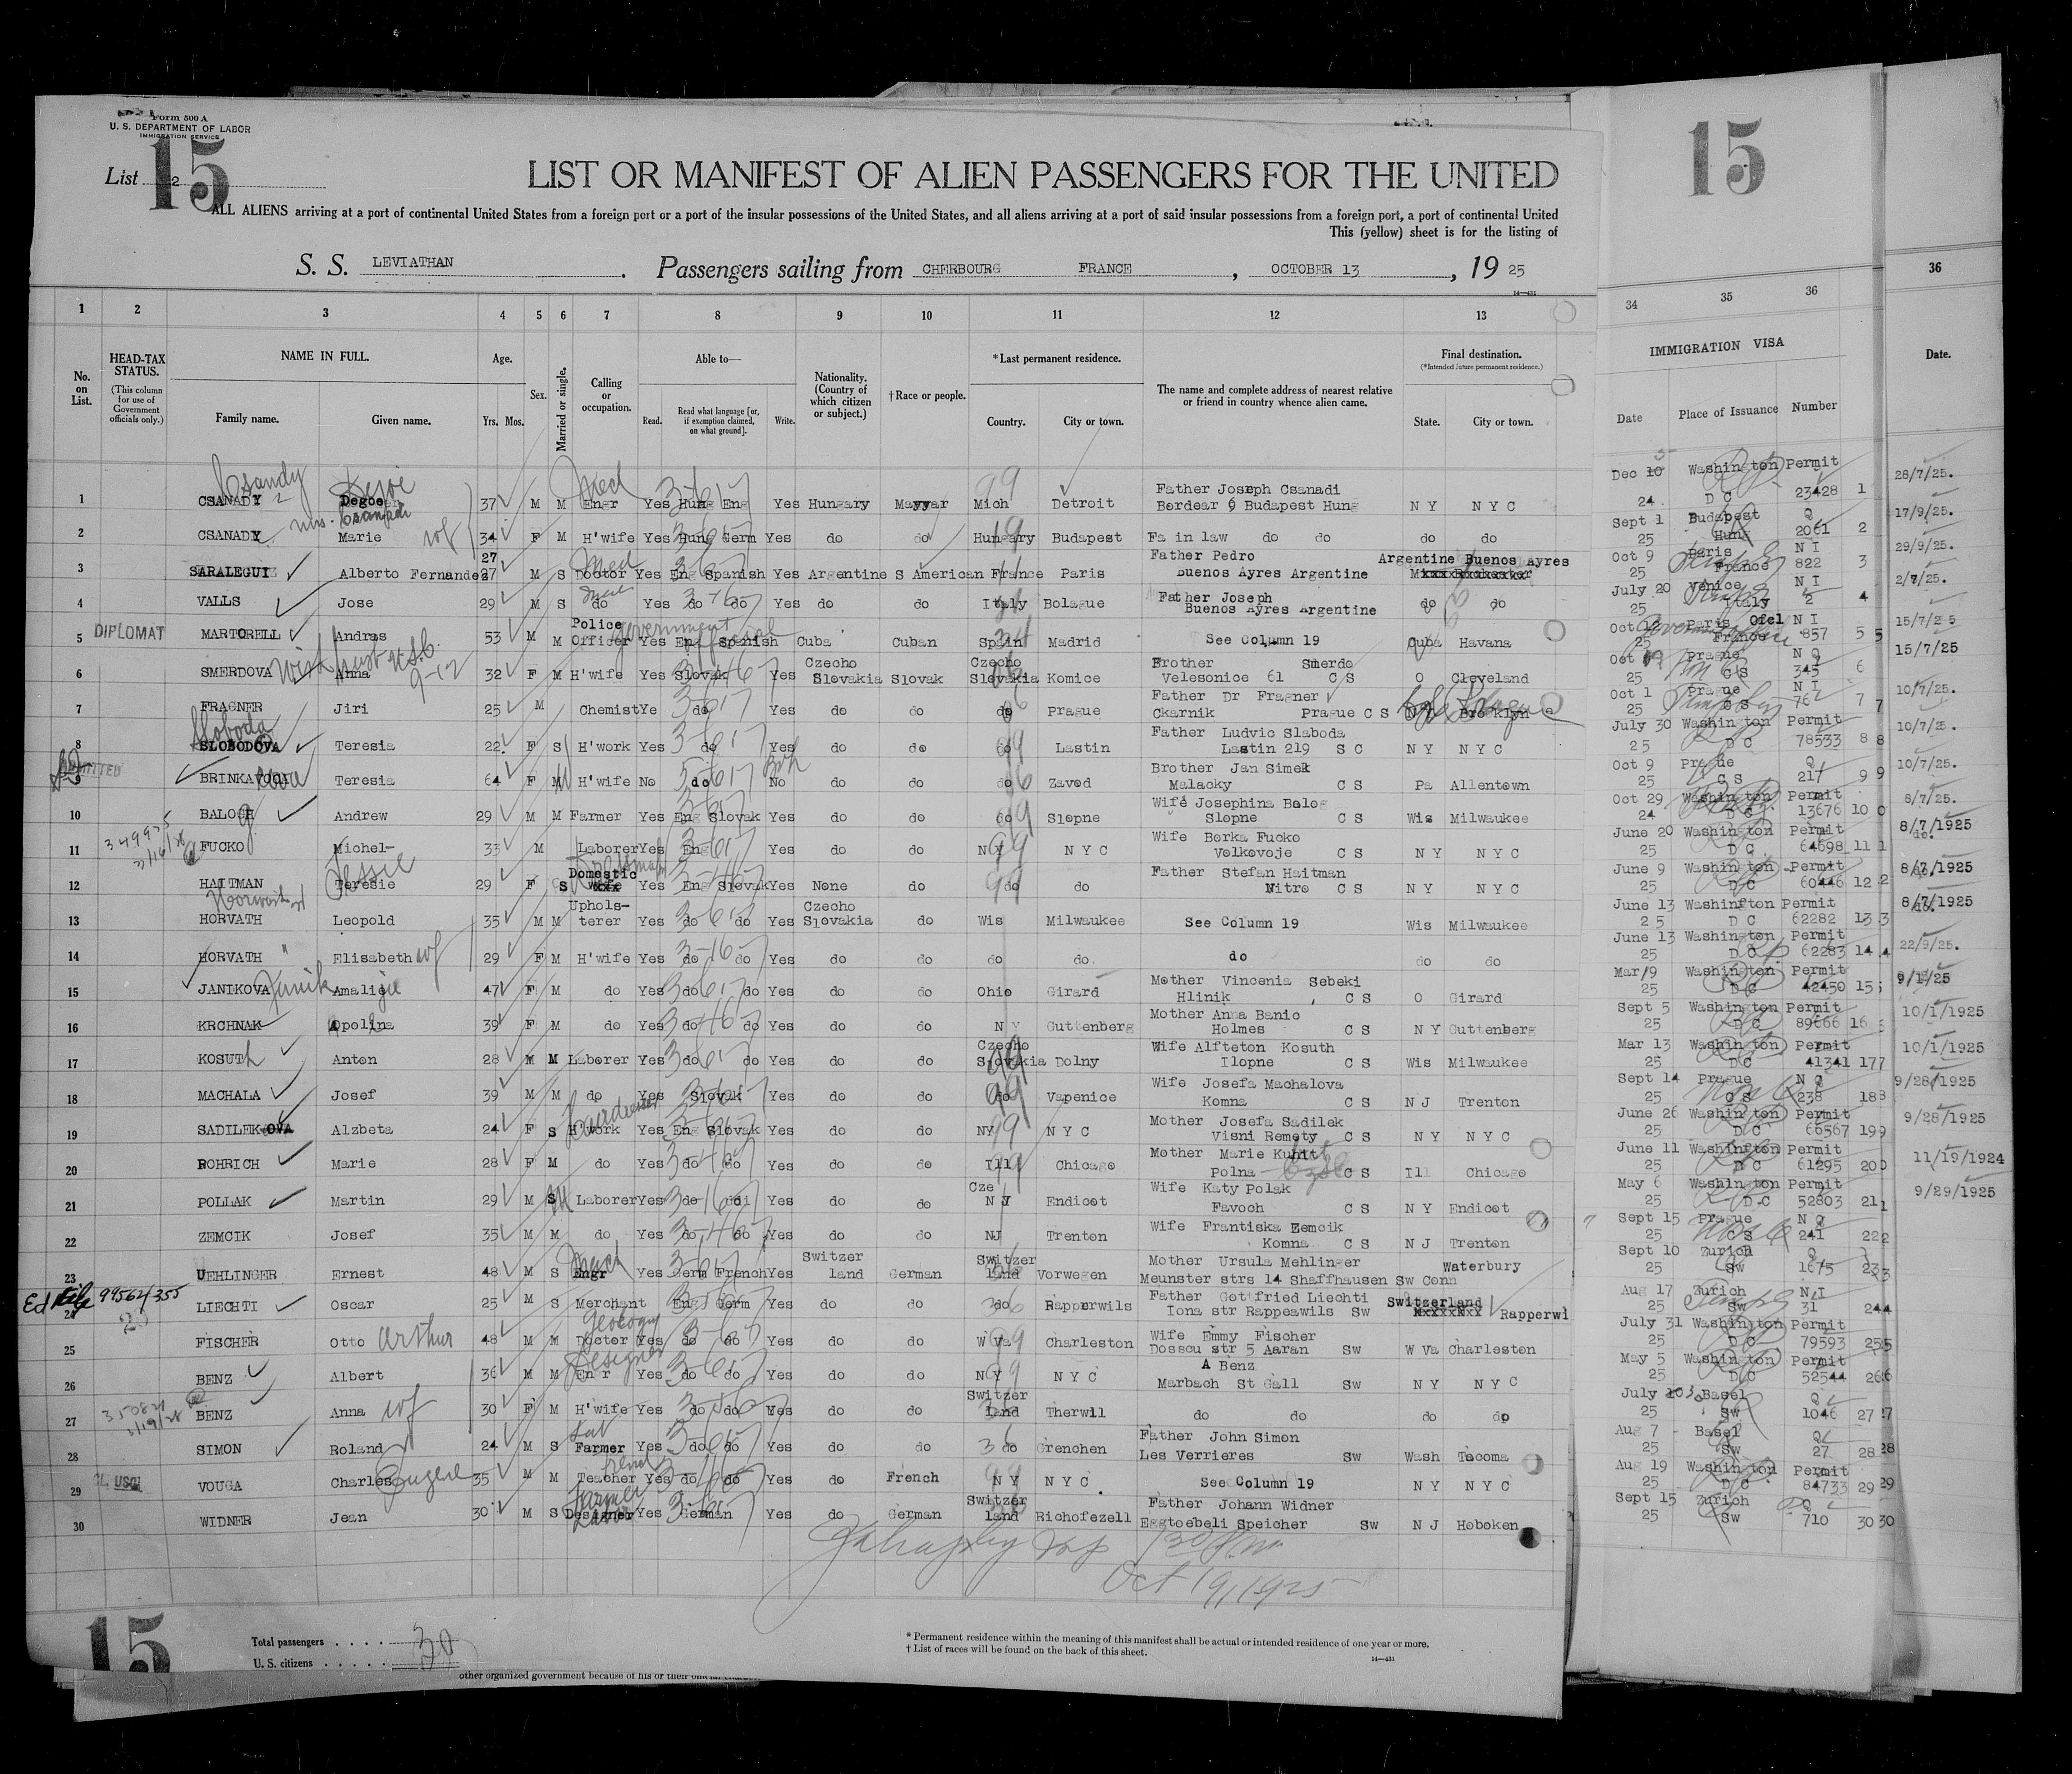 Form 500 A
U. S. DEPARTMENT OF LABOR
IMMIGRATION SERVICE
15
15
List 2
LIST OR MANIFEST OF ALIEN PASSENGERS FOR THE UNITED
ALL ALIENS arriving at a port of continental United States from a foreign port or a port of the insular possessions of the United States, and all aliens arriving at a port of said insular possessions from a foreign port, a port of continental United
This (yellow) sheet is for the listing of
S. S. LEVIATHAN . Passengers sailing from CHERBOURG FRANCE , OCTOBER 13 , 19 25
14—431
1 2 3 4 5 6 7 8 9 10 11 12 13 34 35 36 36
No. on List.
HEAD-TAX STATUS.
(This column for use of Government officials only.)
NAME IN FULL.
Family name. Given name.
Age.
Yrs. Mos.
Sex.
Married or single.
Calling or occupation.
Able to—
Read. Read what language [or, if exemption claimed, on what ground]. Write.
Nationality. (Country of which citizen or subject.)
† Race or people.
* Last permanent residence.
Country. City or town.
The name and complete address of nearest relative or friend in country whence alien came.
Final destination.
(*Intended future permanent residence.)
State. City or town.
IMMIGRATION VISA
Date Place of Issuance Number
Date.
1 CSANADY Degoe 37 M M Engr Yes Hung Eng Yes Hungary Mich Detroit Father Joseph Csanadi Bordear 6 Budapest Hung N Y N Y C Dec 24 Washington D C Permit 23428 1 28/7/25.
2 CSANADY Marie wf 34 F M H'wife Yes Hung Germ Yes do do Hungary Budapest Fa in law do do do do Sept 1 25 Budapest Hung Q 2061 2 17/9/25.
3 SARALEGUI Alberto Fernandez 27 M S Doctor Yes Eng Spanish Yes Argentine S American France Paris Father Pedro Buenos Ayres Argentine Argentine Buenos Ayres Oct 9 25 Paris France N I 822 3 29/9/25.
4 VALLS Jose 29 M S do Yes do do Yes do do Italy Bolague Father Joseph Buenos Ayres Argentine do do July 20 25 Venice Italy N I 2 4 2/7/25.
5 DIPLOMAT MARTORELL Andras 53 M M Police Officer Yes Eng Spanish Cuba Cuban Spain Madrid See Column 19 Cuba Havana Oct 12 25 Paris France Ofcl N I 857 5 5 15/7/25
6 SMERDOVA Anna 32 F M H'wife Yes Slovak Yes Czecho Slovakia Slovak Czecho Slovakia Komice Brother Smerdo Velesonice 61 C S O Cleveland Oct 25 Prague C S N Q 345 6 15/7/25
7 FRAGNER Jiri 25 M Chemist Ye do Yes do do do Prague Father Dr Fragner Ckarnik Prague C S Oct 1 25 Prague C S N I 76 7 7 10/7/25.
8 SLOBODOVA Sloboda Teresia 22 F S H'work Yes do Yes do do do Lastin Father Ludvic Slaboda Lastin 219 S C N Y N Y C July 30 25 Washington D C Permit 78533 8 8 10/7/25.
9 ADMITTED Teresia 64 F H'wife No do No do do do Zavod Brother Jan Simek Malacky C S Pa Allentown Oct 9 25 Prague C S Q 217 9 9 10/7/25.
10 BALOGH Andrew 29 M M Farmer Yes Eng Slovak Yes do do do Slopne Wife Josephina Balog Slopne C S Wis Milwaukee Oct 29 24 Washington D C Permit 13676 10 8/7/25.
11 FUCKO Michel 33 M Laborer Yes Eng Yes do do N Y N Y C Wife Borka Fucko Volkovoje C S N Y N Y C June 20 25 Washington D C Permit 64698 11 8/7/1925
12 HAITMAN Teresie Tessie 29 F S Domestic Yes Eng Slovak Yes None do do do Father Stefan Haitman Nitro C S N Y N Y C June 9 25 Washington D C Permit 60446 12 8/7/1925
13 HORVATH Leopold 35 M M Uphols-terer Yes do do Yes Czecho Slovakia do Wis Milwaukee See Column 19 Wis Milwaukee June 13 25 Washinfton D C Permit 62282 13 8/7/1925
14 HORVATH Elisabeth wf 29 F M H'wife Yes do do Yes do do do do do do do June 13 25 Washington D C Permit 62283 14 22/9/25.
15 JANIKOVA Janik Amalie 47 F M do Yes do do Yes do do Ohio Girard Mother Vincenia Sebeki Hlinik C S O Girard Mar 9 25 Washington D C Permit 42450 15 9/1/25
16 KRCHNAK Apolina 39 F M do Yes do do Yes do do N Y Guttenberg Mother Anna Banic Holmes C S N Y Guttenberg Sept 5 25 Washington D C Permit 89666 16 10/1/1925
17 KOSUTh Anton 28 M M Laborer Yes do do Yes do do Czecho Slovakia Dolny Wife Alfteton Kosuth Ilopne C S Wis Milwaukee Mar 13 25 Washington D C Permit 41341 17 10/1/1925
18 MACHALA Josef 39 M M do Yes Slovak Yes do do do Vapenice Wife Josefa Machalova Komna C S N J Trenton Sept 14 25 Prague C S N Q 238 18 9/28/1925
19 SADILEKOVA Alzbeta 24 F S H'work Yes Eng Slovak Yes do do NY N Y C Mother Josefa Sadilek Visni Remety C S N Y N Y C June 26 25 Washington D C Permit 66567 19 9/28/1925
20 ROHRICH Marie 28 F M do Yes do do Yes do do Ill Chicago Mother Marie Polna C S Ill Chicago June 11 25 Washinfton D C Permit 61295 20 11/19/1924
21 POLLAK Martin 29 M Laborer Yes do do Yes do do N J Endicot Wife Katy Polak Favoch C S N Y Endicot May 6 25 Washinton D C Permit 52803 21 9/29/1925
22 ZEMCIK Josef 35 M M do Yes do do Yes do do NJ Trenton Wife Frantiska Zemcik Komna C S N J Trenton Sept 15 25 Prague C S N Q 241 22
23 UEHLINGER Ernest 48 M S Engr Yes Germ French Yes Switzer land German Switzer land Vorwegen Mother Ursula Mehlinger Meunster strs 14 Shaffhausen Sw Conn Waterbury Sept 10 25 Zurich Sw Q 1675 23
24 99562/355 LIECHTI Oscar 25 M S Merchant Eng Germ Yes do do do Rapperwils Father Gottfried Liechti Iona str Rappeawils Sw Switzerland Rapperwi Aug 17 25 Zurich Sw N I 31 24
25 FISCHER Otto Arthur 48 M M Doctor Geology Yes do do Yes do do W Va Charleston Wife Emmy Fischer Dossou str 5 Aaran Sw W Va Charleston July 31 25 Washington D C Permit 79593 25
26 BENZ Albert 36 M M Designer Yes do do Yes do do N Y N Y C A Benz Marbach St Gall Sw N Y N Y C May 5 25 Washington D C Permit 52544 26
27 BENZ Anna wf 30 F M H'wife Yes do do Yes do do Switzer land Therwil do do do do July 25 Basel Sw Q 1046 27 27
28 SIMON Roland 24 M S Farmer Yes do do Yes do do do Grenchen Father John Simon Les Verrieres Sw Wash Tacoma Aug 7 25 Basel Sw Q 27 28 28
29 VOUGA Charles Eugene 35 M M Teacher Yes do do Yes do French N Y N Y C See Column 19 N Y N Y C Aug 19 25 Washington D C Permit 84733 29 29
30 WIDNER Jean 30 M S Designer Yes German Yes do German Switzer land Richofezell Father Johann Widner Eggtoebeli Speicher Sw N J Hoboken Sept 15 25 Zurich Sw Q 710 30 30
Oct 19, 1925
15
Total passengers . . . . 30
U. S. citizens . . . . .
* Permanent residence within the meaning of this manifest shall be actual or intended residence of one year or more.
† List of races will be found on the back of this sheet.
14—431
other organized government because of his or their